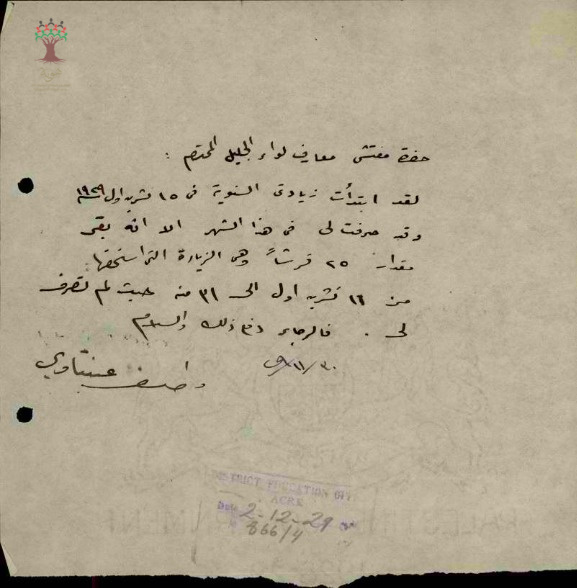 حضرة مفتش معارف لواء الجليل المحترم :
لقد ابتدأت زيادتي السنوية في ١٥ تشرين اول ١٩٢٩
وقد صرفت لي في هذا الشهر الا انه بقي
مقدار ٢٥ قرشاً وهي الزيادة التي استحقها
من ١٦ تشرين اول الى ٣١ منه حيث لم تصرف
لي . فالرجاء دفع ذلك والسلام
٣٠/١١/
واصف عنبتاوي
DISTRICT EDUCATION OFF
ACRE
Date 2-12-29
866/4